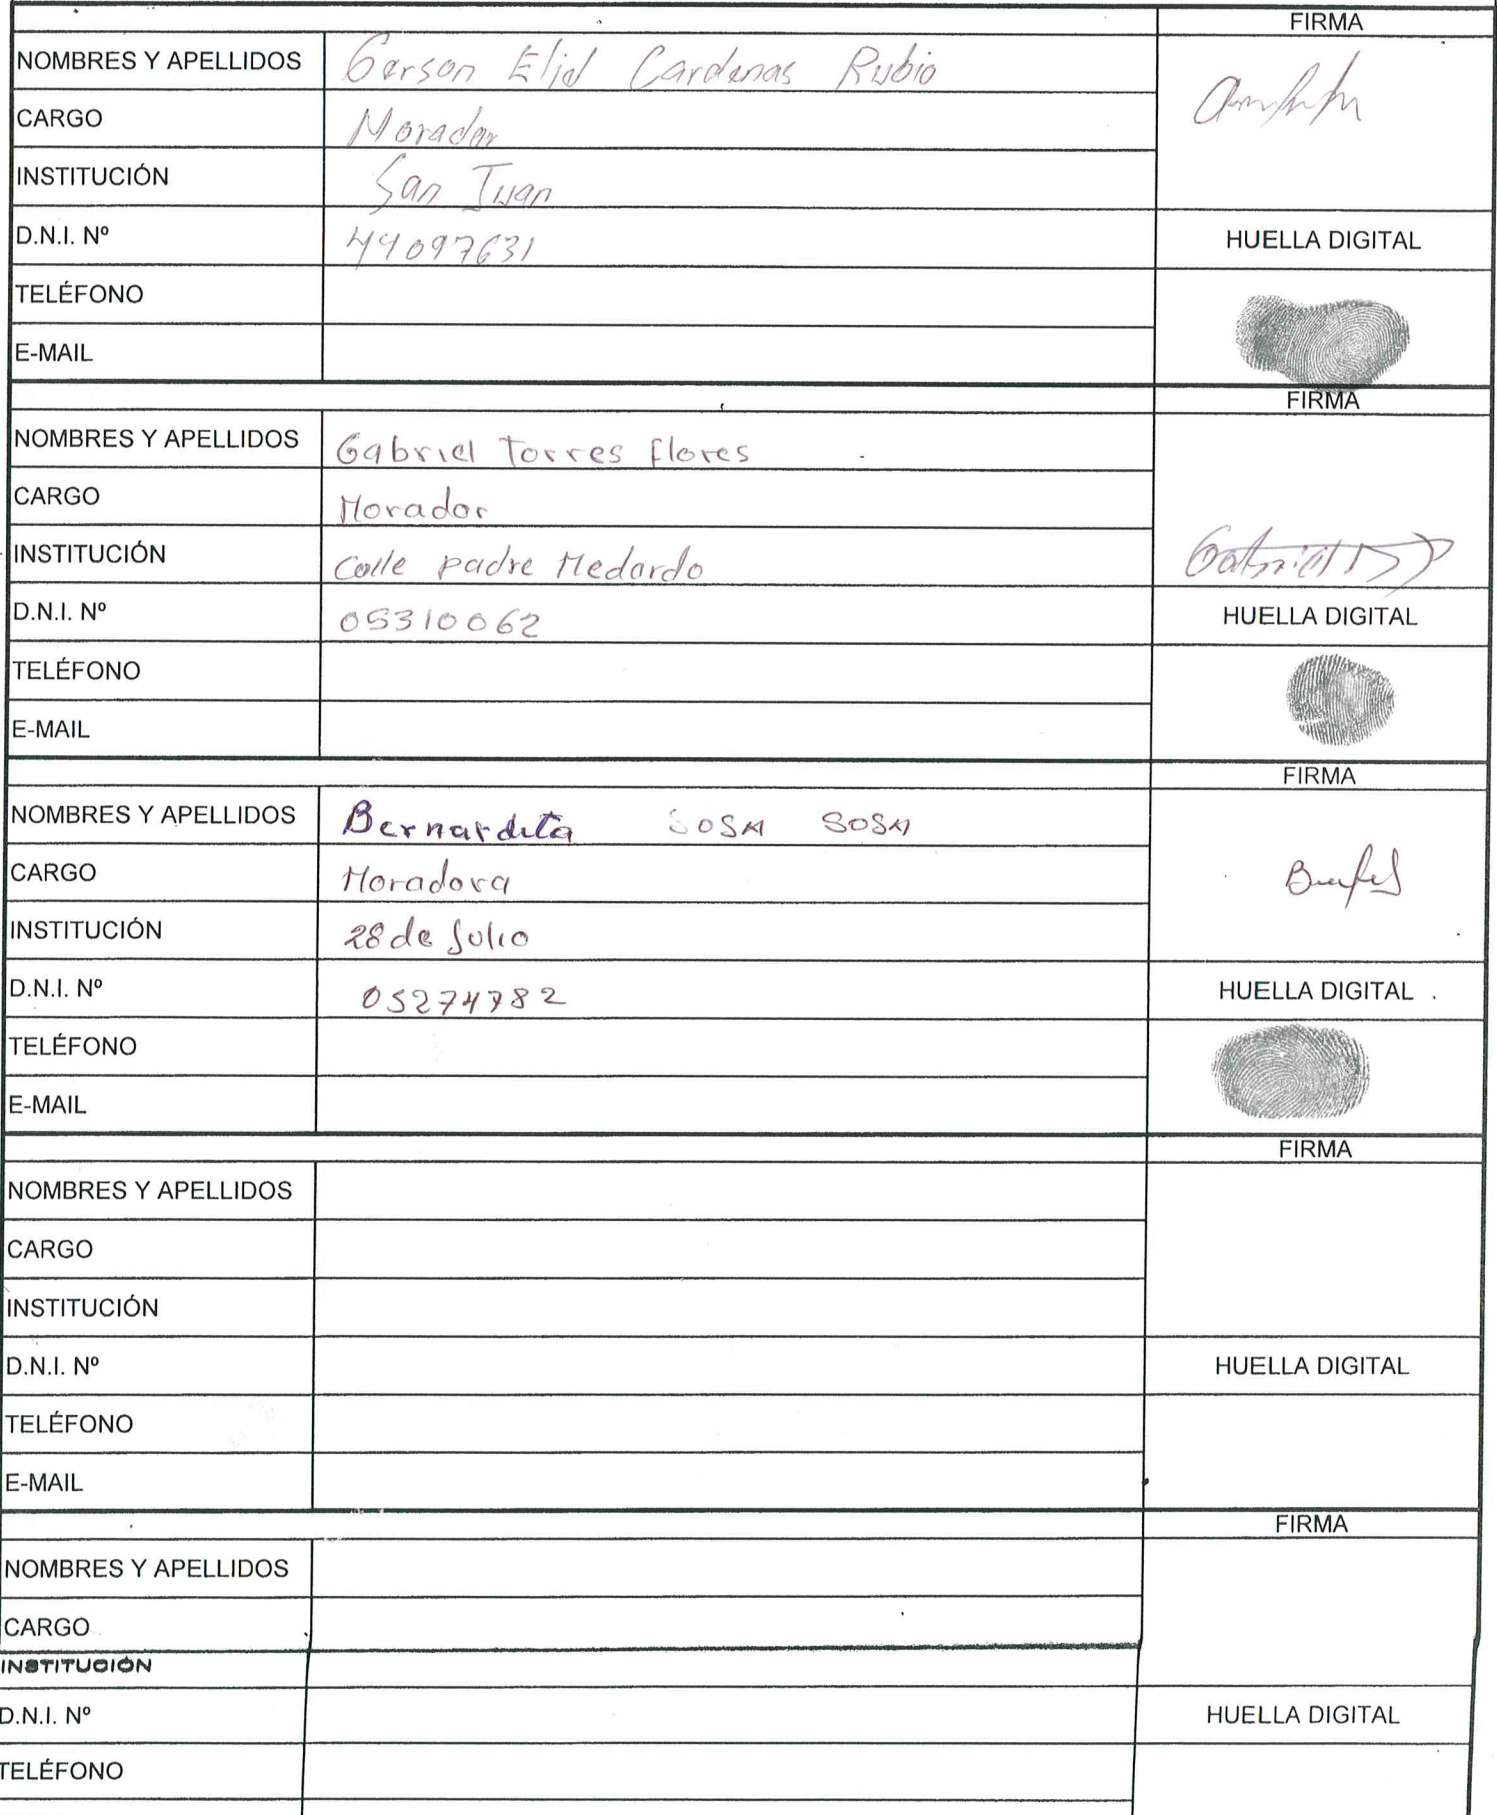 FIRMA
NOMBRES Y APELLIDOS Gerson Eliel Cardenas Rubio
CARGO Morador
INSTITUCIÓN San Juan
D.N.I. Nº 44097631
HUELLA DIGITAL
TELÉFONO
E-MAIL
FIRMA
NOMBRES Y APELLIDOS Gabriel Torres flores
CARGO Morador
INSTITUCIÓN Calle padre Medardo
D.N.I. Nº 05310062
HUELLA DIGITAL
TELÉFONO
E-MAIL
FIRMA
NOMBRES Y APELLIDOS Bernardita SOSA SOSA
CARGO Moradora
INSTITUCIÓN 28 de Julio
D.N.I. Nº 05274782
HUELLA DIGITAL
TELÉFONO
E-MAIL
FIRMA
NOMBRES Y APELLIDOS
CARGO
INSTITUCIÓN
D.N.I. Nº
HUELLA DIGITAL
TELÉFONO
E-MAIL
FIRMA
NOMBRES Y APELLIDOS
CARGO
INSTITUCIÓN
D.N.I. Nº
HUELLA DIGITAL
TELÉFONO